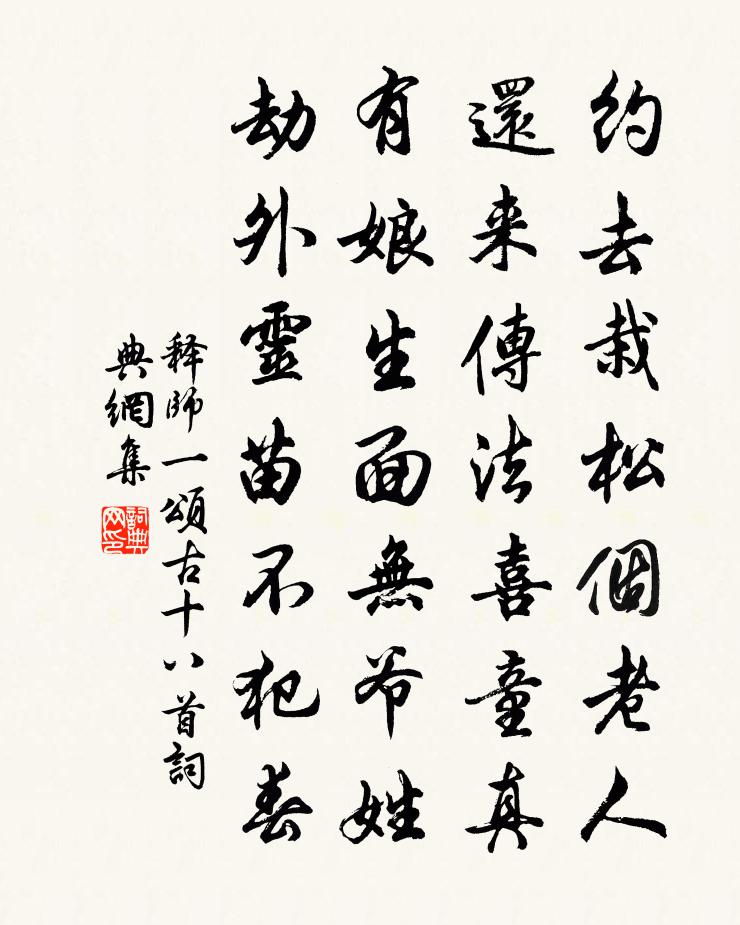 約去栽松個老人
還来傳法喜童真
有娘生面無爷姓
劫外靈苗不犯春
释師一頌古十八首詞
典網集
詞典网印